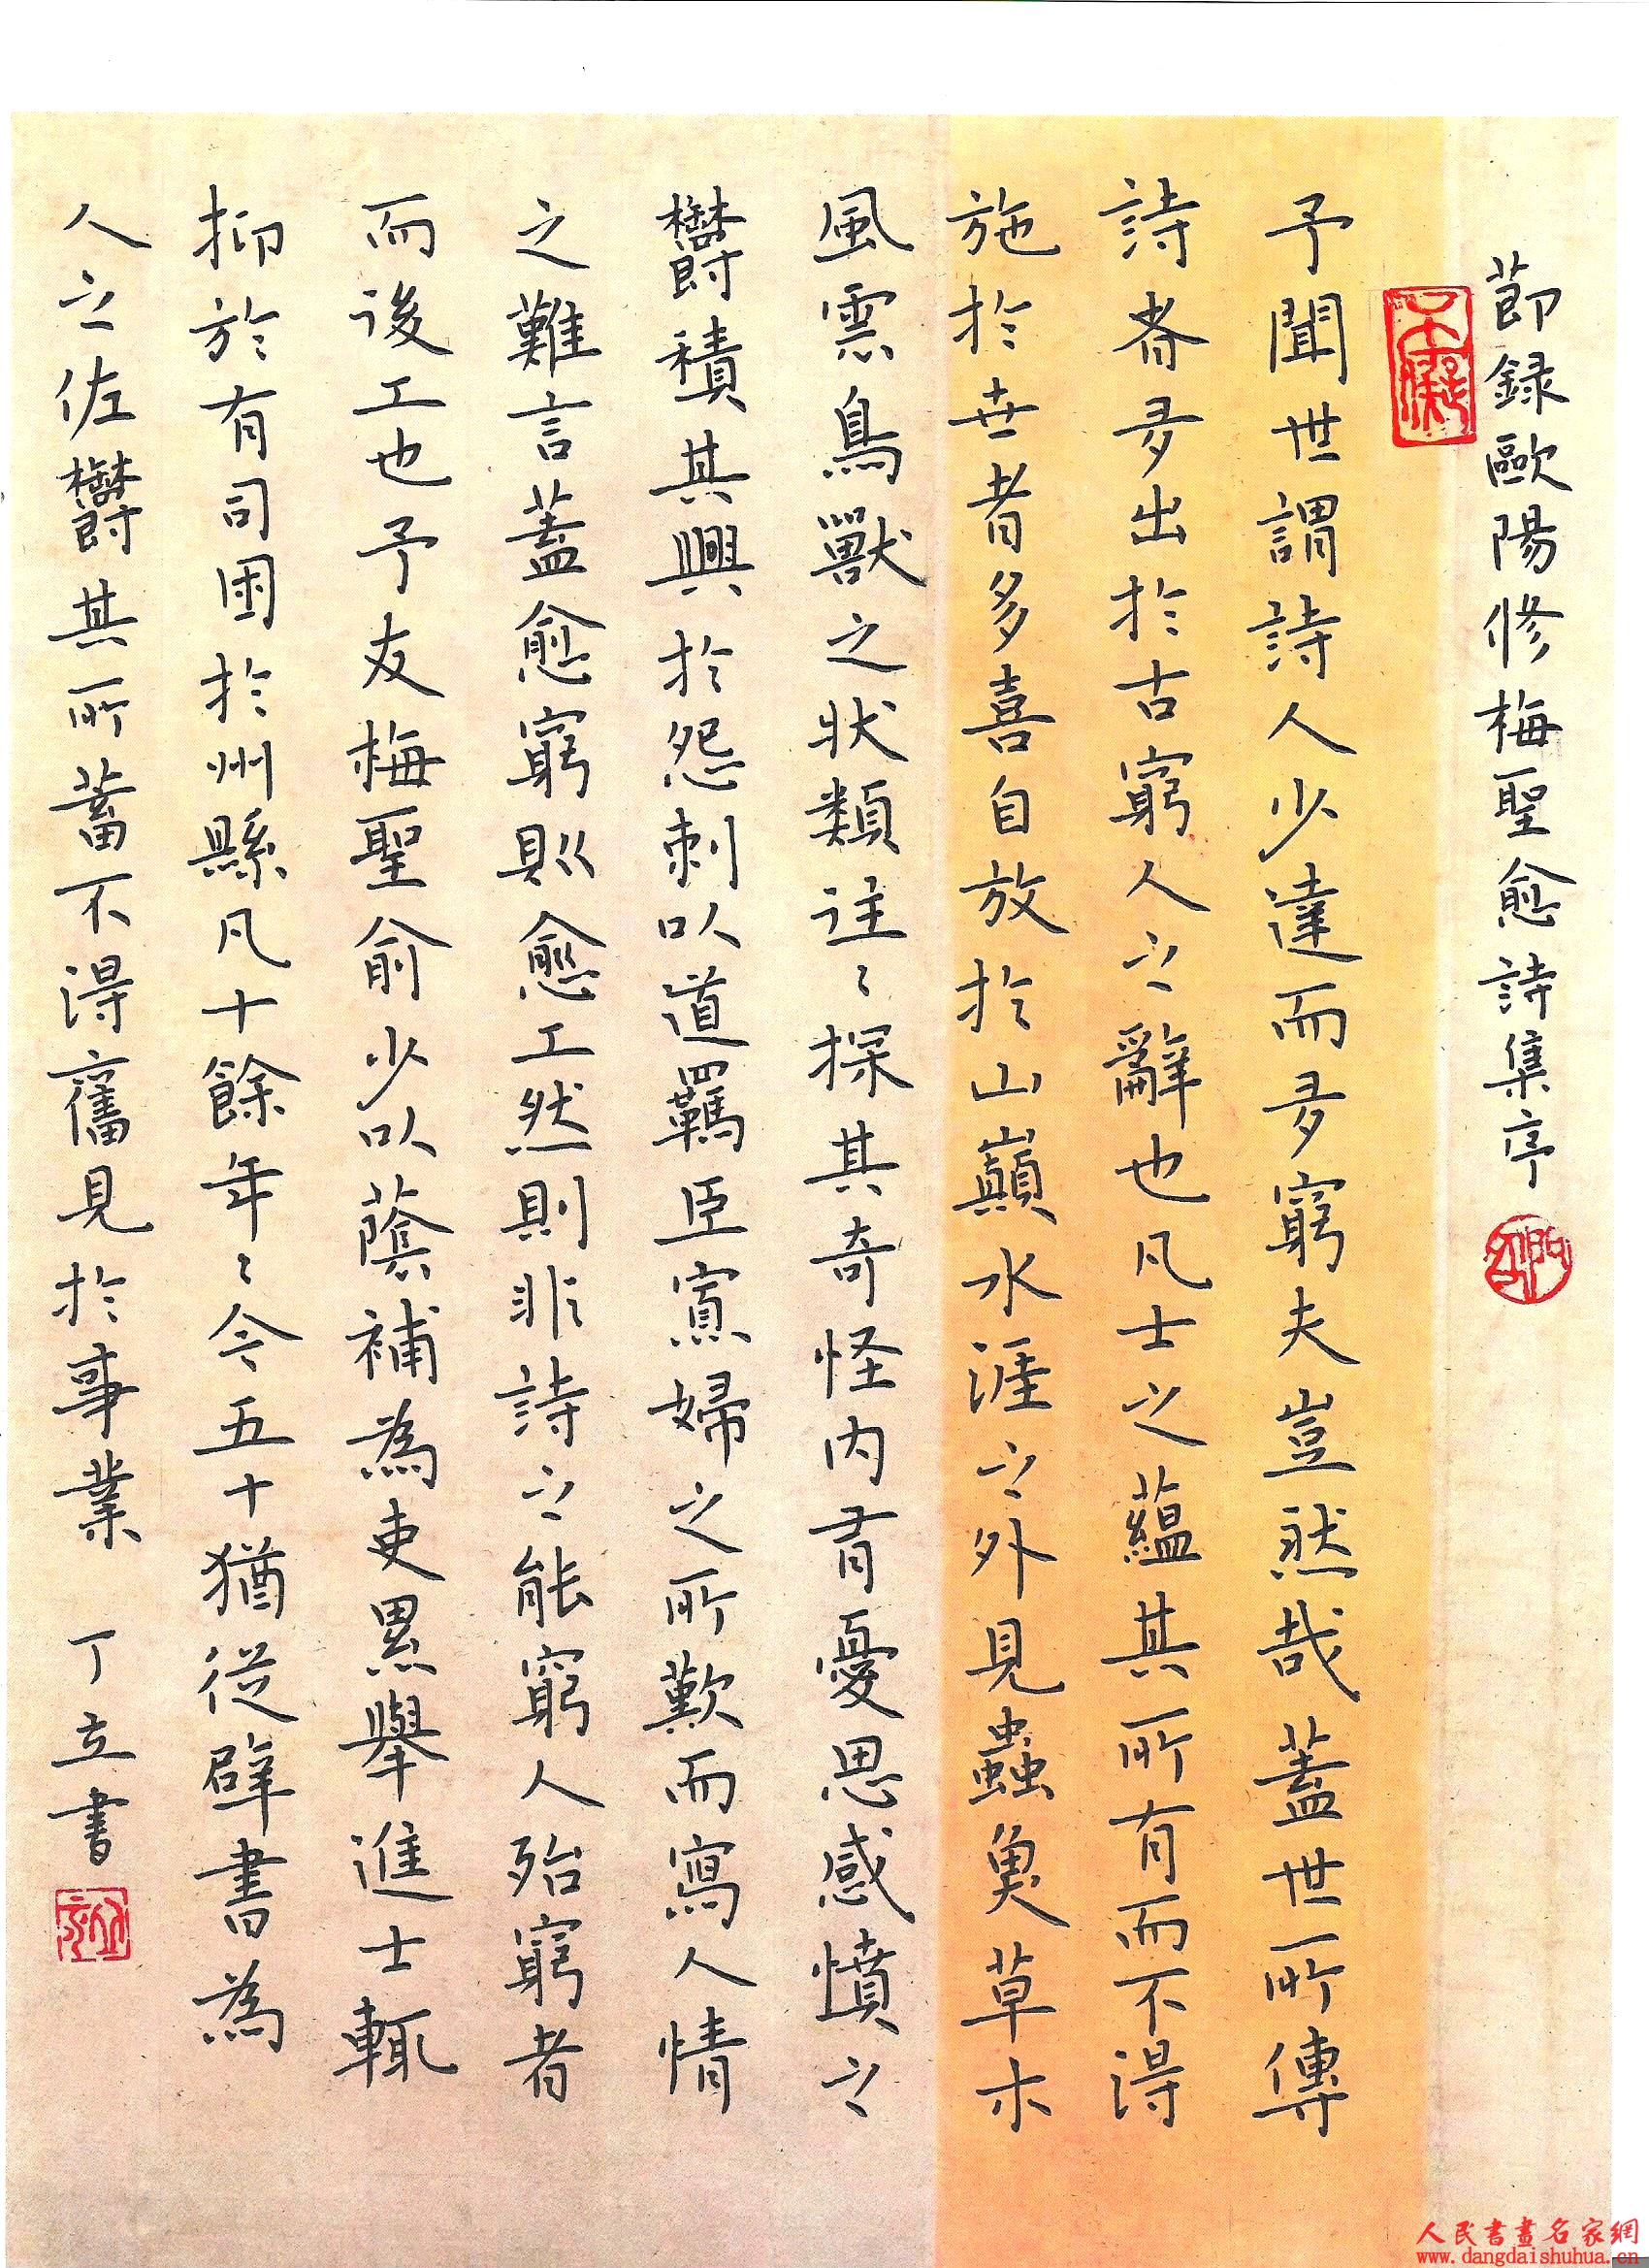 節録歐陽修梅聖愈詩集序
予聞世謂詩人少達而多窮夫豈然哉蓋世所傳
詩者多出於古窮人之辭也凡士之蘊其所有而不得
施於世者多喜自放於山巔水涯之外見蟲魚草木
風雲鳥獸之状類往々探其奇怪内有憂思感憤之
欝積其興於怨刺以道羈臣寡婦之所歎而寫人情
之難言蓋愈窮則愈工然則非詩之能窮人殆窮者
而後工也予友梅聖俞少以蔭補為吏累舉進士輒
抑於有司困於州縣凡十餘年々今五十猶從辟書為
人之佐欝其所蓄不得奮見於事業 丁立書
人民書畫名家網
www.dangdaishuhua.cn